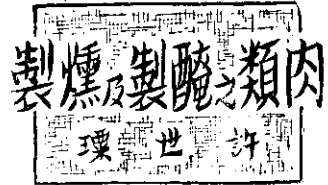 肉類之醃製及燻製
許世璞